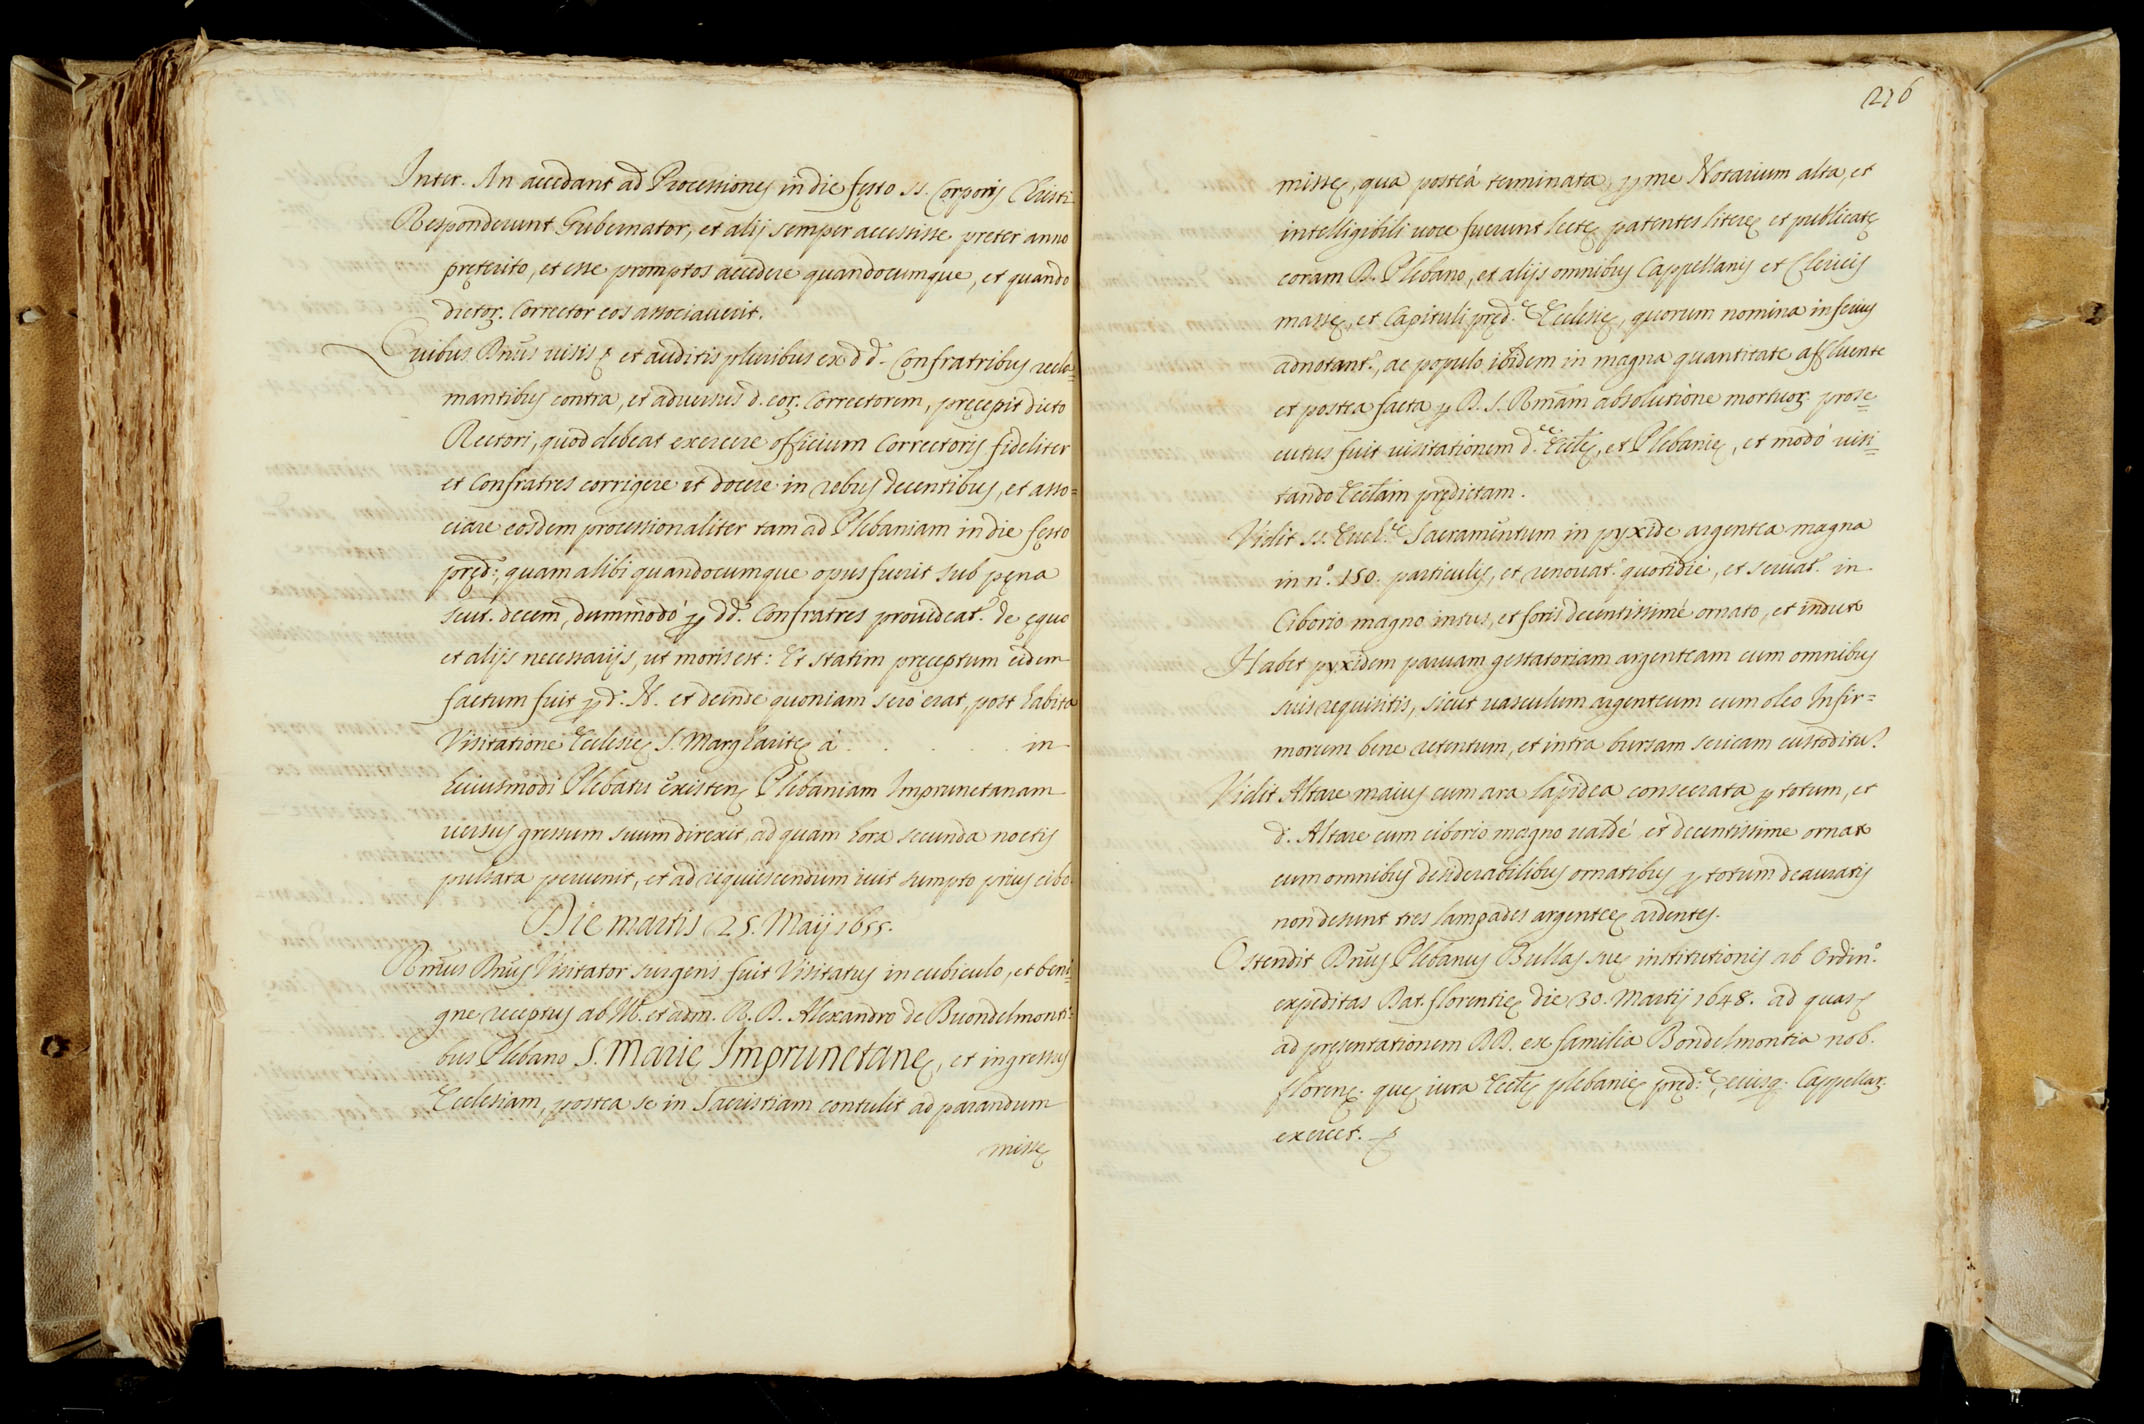 Inter. An accedant ad Processiones in die festo SS. Corporis Christi
Responderunt Gubernator, et alij semper accessisse preter anno
pręterito, et esse promptos accedere quandocumque, et quando
dictoꝝ. Corrector eos associaverit.
Quibus Dnus visis et auditis pluribus ex dd. Confratribus recla=
mantibus contra, et adversus d. eoꝝ. Correctorem, pręcepit dicto
Rectori, quod debeat exercere officium Correctoris fideliter
et Confratres corrigere et docere in rebus decentibus, et asso=
ciare eosdem processionaliter tam ad Plebaniam in die festo
pręd:, quam alibi quandocumque opus fuerit sub pęna
scut. decem, dummodò ꝑ dd. Confratres provideat. de ęquo
et alijs necessarijs, ut moris est: Et statim pręceptum eidem
factum fuit ꝑ d. N. et deinde quoniam serò erat, post habita
Visitatione Ecclesię S. Margharitę à . . . . . in
huiusmodi Plebatu existen. Plebaniam Imprunetanam
versus gressum suum direxit, ad quam hora secunda noctis
pulsata pervenit, et ad requiescendum ivit sumpto prius cibo.
Die martis 25. Maij 1655.
Rmus Dnus Visitator surgens fuit Visitatus in cubiculo, et beni=
gne receptus ab Ill. et adm. R. D. Alexandro de Buondelmonti=
bus Plebano S. Marię Imprunetanę, et ingressus
Ecclesiam, postea se in Sacristiam contulit ad parandum
missę
216
missę, qua posteà terminata, ꝑ me Notarium alta, et
intelligibili voce fuerunt lectę patentes literę et publicatę
coram D. Plebano, et alijs omnibus Cappellanis et Clericis
massę, et Capituli pręd.ę Ecclesię, quorum nomina inferius
adnotant.r, ac populo ibidem in magna quantitate affluente
et postea facta ꝑ D. S. Rmam absolutione mortuoꝝ prose=
cutus fuit visitationem d.ę Ecclę, et Plebanię, et modò visi=
tando Ecclam prędictam.
Vidit SS. Euch.ę Sacramentum in pyxide argentea magna
in n.º 150. particulis, et renovat. quotidiè, et servat. in
Ciborio magno intus, et foris decentissimè ornato, et induto
Habet pyxidem parvam gestatoriam argenteam cum omnibus
suis requisitis, sicut vasculum argenteum cum oleo Infir=
morum bene retentum, et intra bursam sericam custoditu.
Vidit Altare maius cum ara lapidea consecrata ꝑ totum, et
d. Altare cum ciborio magno valdè et decentissime ornato
cum omnibus desiderabilibus ornatibus ꝑ totum deauratis
non desunt tres lampades argentęę ardentes.
Ostendit Dnus Plebanus Bullas suę institutionis ab Ordin.º
expeditas Dat. Florentię die 30. Martij 1648. ad quas
ad pręsentationem DD. ex familia Bondelmontia nob.
floren. quę iura Ecclę plebanię pręd.ę, eiusq. Cappellaꝝ.
exercet.